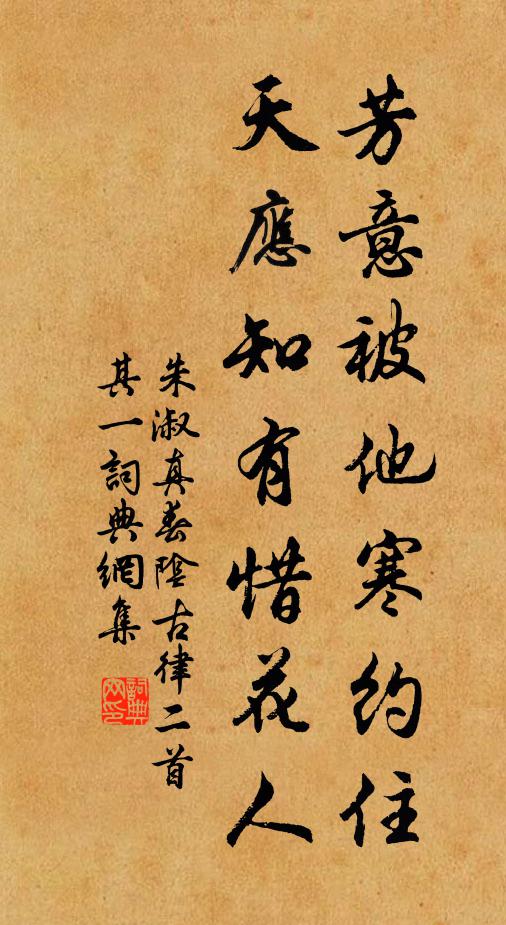 芳意被他寒約住
天應知有惜花人
朱淑真春陰古律二首
其一詞典網集
詞典網印